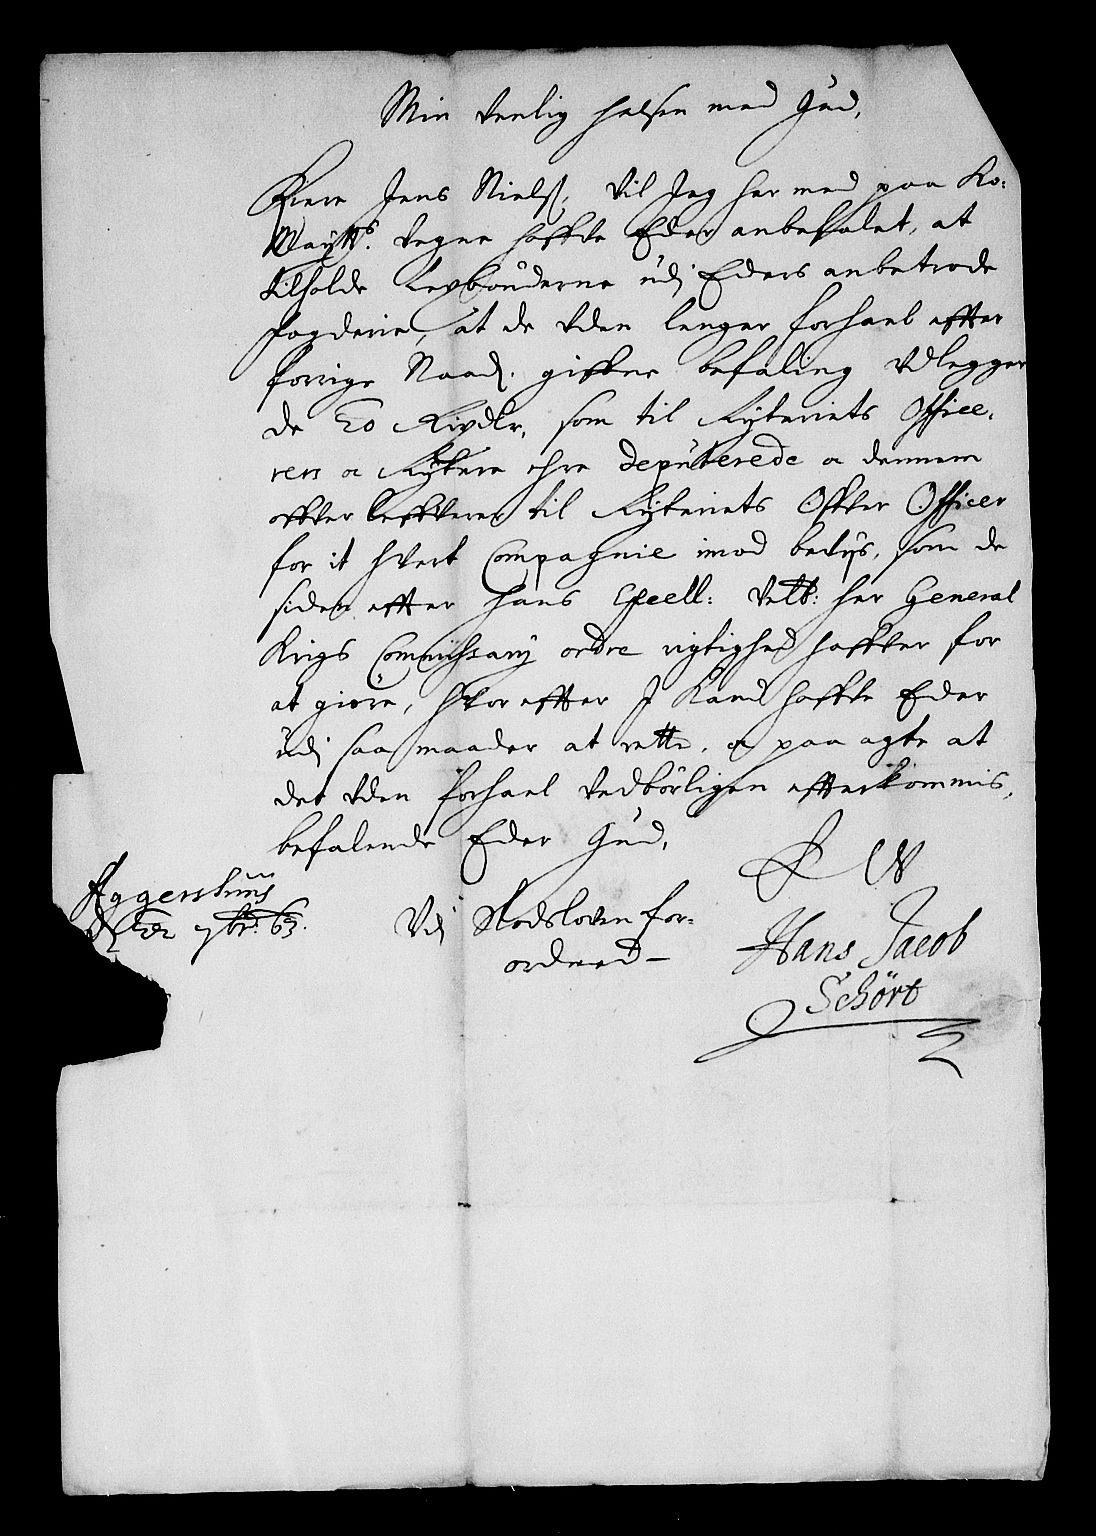 Min venlig helsen med Gud,
Kiere Jens Nielß, Vil Jeg her med paa Ko:
Maytts. Vegne haffve Eder anbefalet, at
tilholde Leybønderne udj Eders anbetrode
fogderie, at de uden lenger forhael effter
forrige Naad. gifvne befaling Udlegger
de 20 Rixdlr, som til Rytteriets Office,
rers oc Ryttere ehre deputerede oc dennem
ofver lefverer til Rytteriets Ofver Officer
for it hvert Compagnie imod bevijs, som de
siden effter Hans Excell: Velb: her General
Krigs Commissary ordre rigtighed haffver for
at giøre, Hvor effter I Kand haffve Eder
udj saa maader at rette, oc paa agte at
det uden forhael vedbørligen effterkommis,
befalende Eder Gud,
Aggershuus
7br: 63.
Vdj Stadsloven for-
ordned -
E W
Hans Jacob
Schört